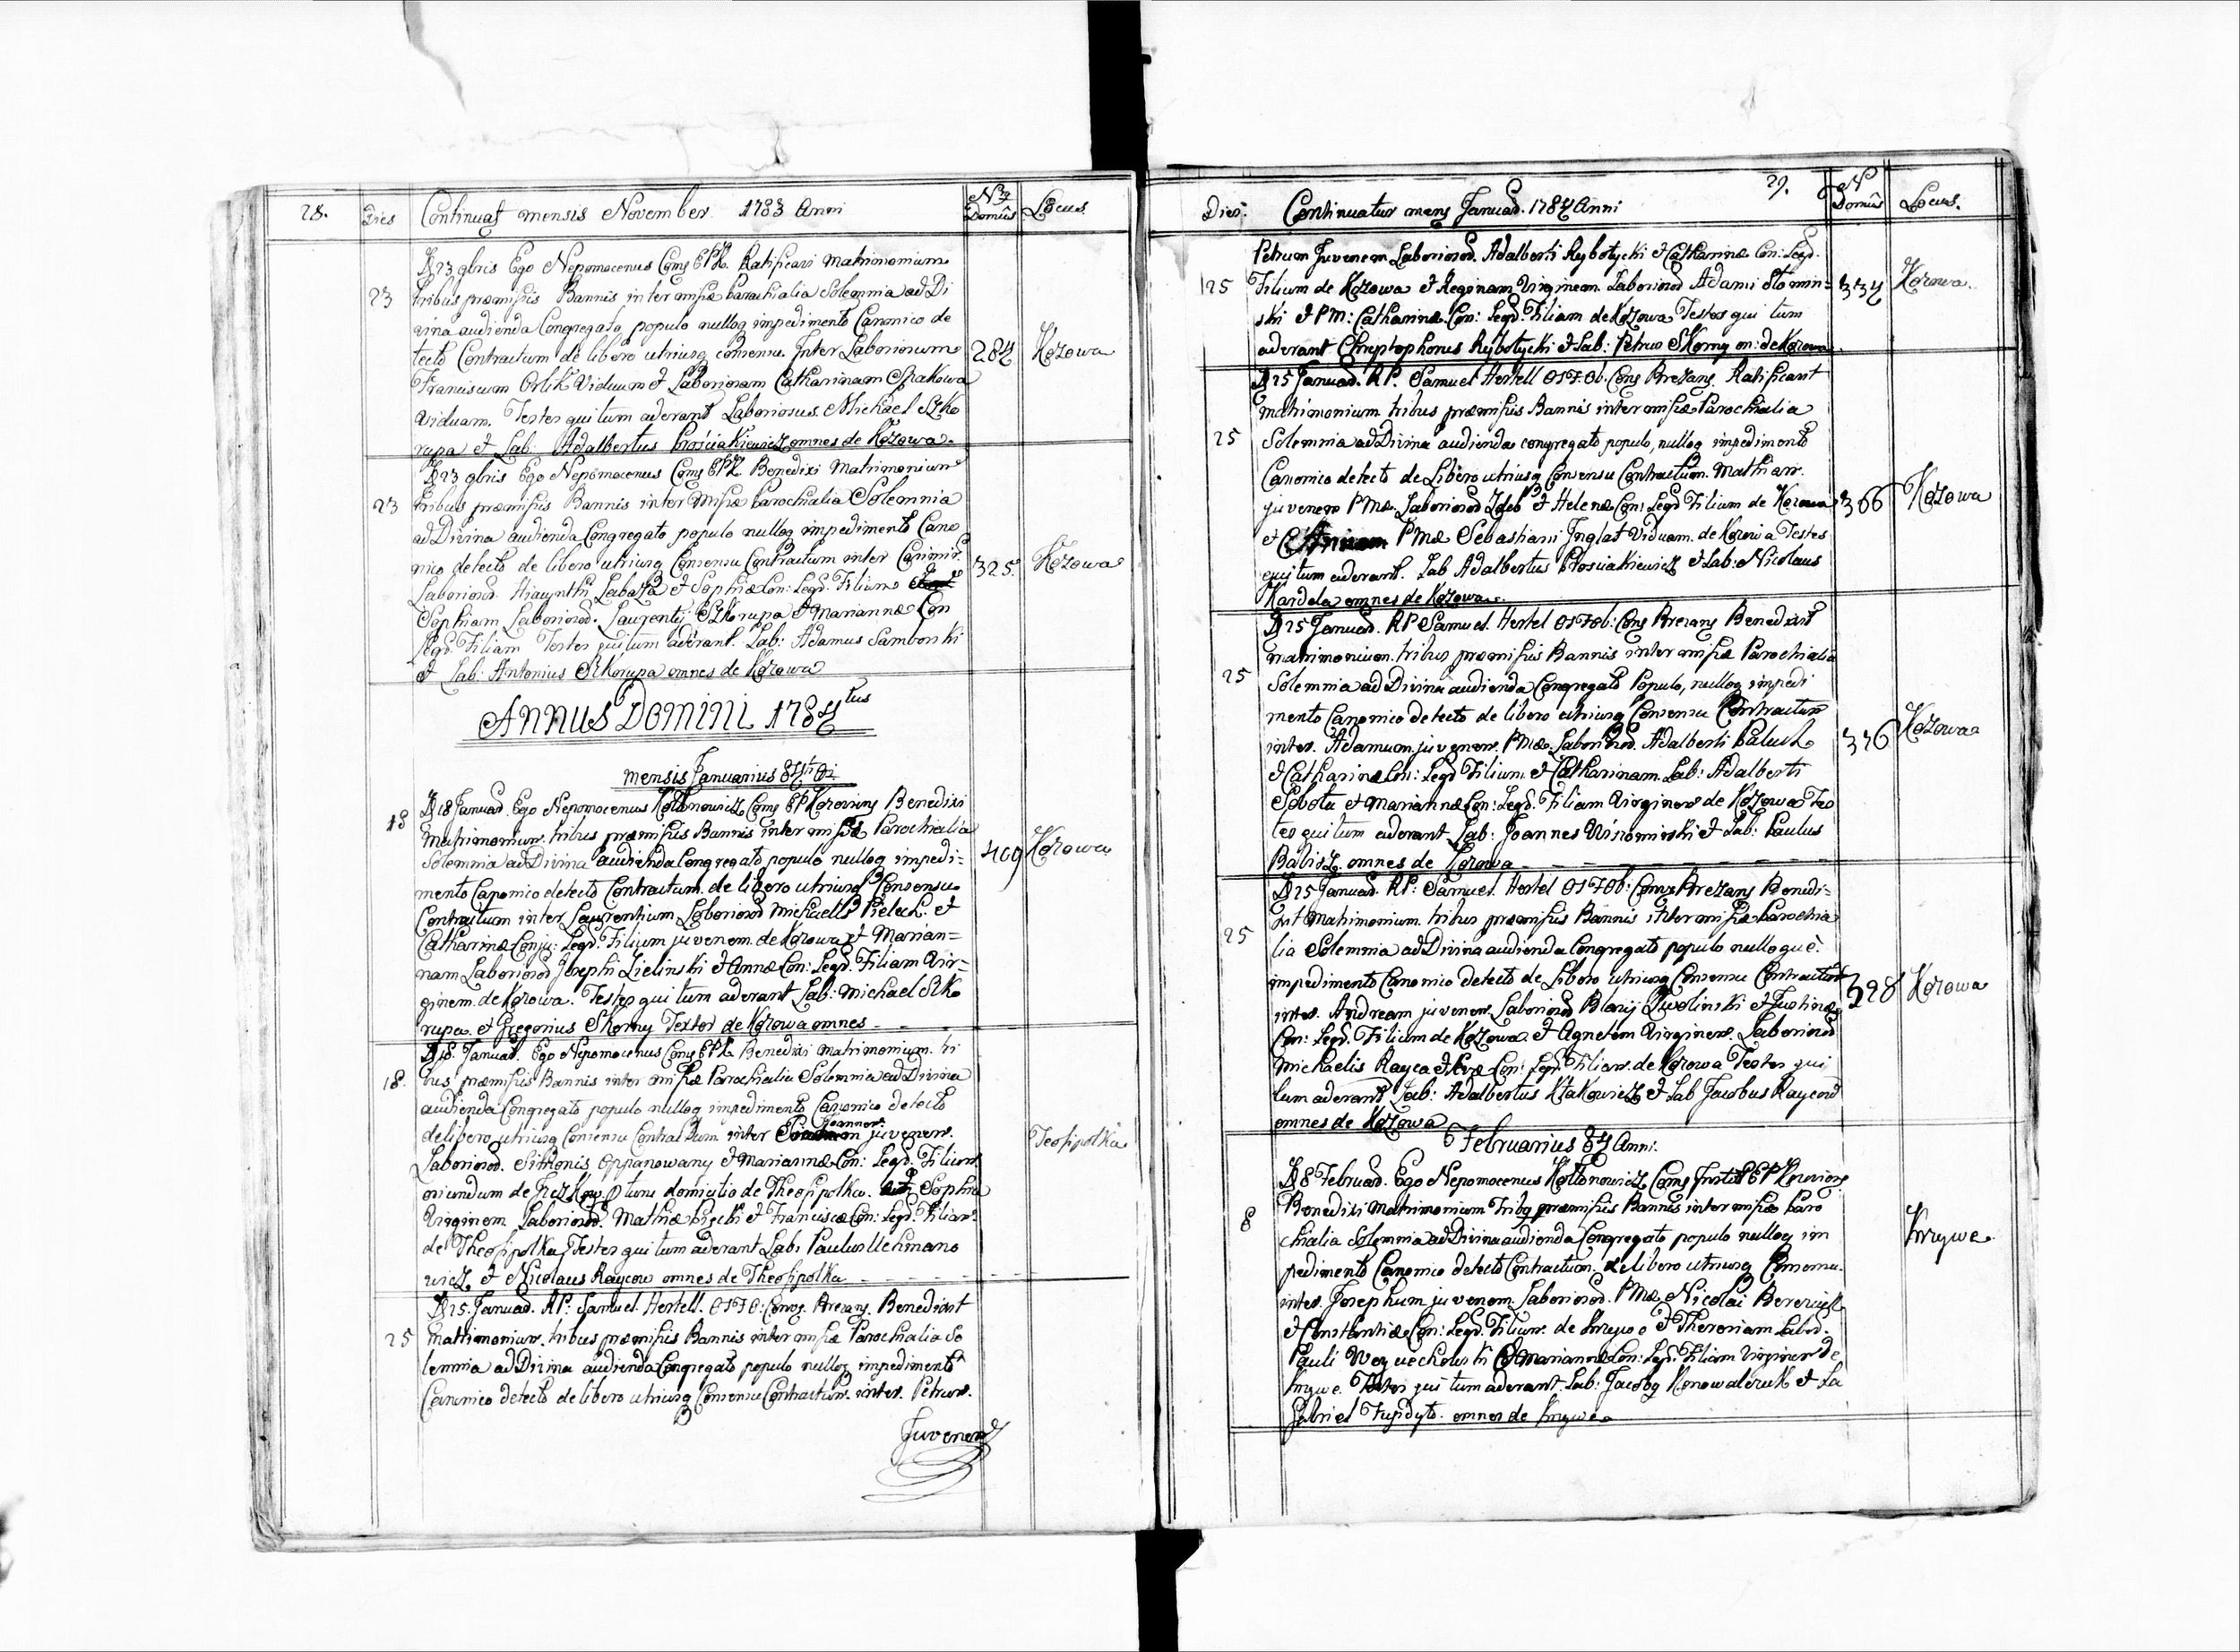 28. Dies Continuat mensis November 1783 Anni Nrg Domûs Locus.
D 23 9bris Ego Nepomocenus Coms EPK. Ratificavi Matrimonium
23 tribus præmissis Bannis inter missæ Parochialia Solemnia ad Di
vina audienda Congregato populo nulloq impedimento Canonico de
tecto Contractum de libero utriusq consensu. Inter Laboriosum 284 Kozowa
Franciscum Orlik Viduum et Laboriosam Catharinam
Viduam. Testes qui tum aderant Laboriosus Michael Szko
rupa et Lab. Adalbertus Prosciakiewicz omnes de Kozowa.
D 23 9bris Ego Nepomocenus Coms EPK Benedixi Matrimonium
23 tribus præmissis Bannis inter Missæ Parochialia Solemnia
ad Divina audienda Congregato populo nulloq impedimento Cano
nico detecto de libero utriusq Consensu Contractum inter Casimir 325. Kozowa
Laboriosor. Hiacynthi Labaza et Sophiæ Con: Legit. Filium
Sophiam Laboriosor. Laurentij Szkorupa et Mariannæ Con
Legit. Filiam Testes qui tum aderant. Lab: Adamus Samborski
et Lab: Antonius Szkorupa omnes de Kozowa
ANNUS DOMINI 1784tus
mensis Januarius 84ti
D 18 Januar. Ego Nepomocenus Koltonowicz Coms EP Kozoviens Benedixi
18 Matrimonium tribus præmissis Bannis inter missæ Parochialia
Solemnia ad Divina audienda Congregato populo nulloq impedi= 409 Kozowa
mento Canonico detecto Contractum. de libero utriusq Consensu
Contractum inter Laurentium Laboriosor Michaelis Pieluch. et
Catharinæ Conju: Legit. Filium juvenem. de Kozowa et Marian=
nam Laboriosor Josephi Zielinski et Annæ Con: Legit. Filiam Vir=
ginem. de Kozowa. Testes qui tum aderant Lab: Michael Szko
rupa. et Gregorius Skorny Textor de Kozowa omnes
D 18. Januar. Ego Nepomocenus Coms EPK Benedixi Matrimonium. tri
18. bus præmissis Bannis inter missæ Parochialia Solemnia ad Divina
audienda Congregato populo nulloq impedimento Canonico detecto
de libero utriusq Consensu Contractum inter Joannem juvenem. Teofipolka
Laboriosor. Sithonis Oppanowany et Mariannæ Con: Legit. Filium
oriundum de tunc domicilio de Theofipolka. Sophia
Virginem Laboriosor. Mathiæ et Franciscæ Con: Legit. Filiam
de Theofipolka Testes qui tum aderant Lab: Paulus Uchmano
wicz et Nicolaus Raycow omnes de Theofipolka
D 25. Januar. RP: Samuel Hertell. Brezans. Benedixit
25 Matrimonium. tribus præmissis Bannis inter missæ Parochialia So
lemnia ad Divina audienda Congregato populo nulloq impedimento
Canonico detecto de libero utriusq Consensu Contractum. inter. Petrum.
Juvenem
Dies. Continuatur mens Januar. 1784 Anni 29. N Domûs Locus.
Petrum Juvenem Laboriosor. Adalberti Rybotycki et Catharinæ Con: Legit.
25 Filium de Kozowa et Reginam Virginem. Laboriosor Adami Słomin= 334 Kozowa.
ski et PM: Catharinæ. Con: Legit. Filiam de Kozowa Testes qui tum
aderant Chryptophorus Rybotycki et Lab: Petrus Skorny de Kozowa
D 25 Januar. RP. Samuel Hertell Coms Brezans. Ratificavit
matrimonium tribus præmissis Bannis inter missæ Parochialia
25 Solemnia ad Divina audienda congregato populo, nulloq impedimento
Canonico detecto de Libero utriusq Consensu Contractum. Mathiam.
juvenem PMæ. Laboriosor et Helenæ Con: Legit Filium de Kozowa 366 Kozowa
et PMæ Sebastiani Viduam. de Kozowa Testes
qui tum aderant. Lab Adalbertus Prosciakiewicz et Lab: Nicolaus
Kardela omnes de Kozowa.
D 25 Januar. RP Samuel. Hertel Coms Brezans Benedixit
matrimonium. tribus præmissis Bannis inter missæ Parochialia
25 Solemnia ad Divina audienda Congregato Populo, nulloq impedi
mento Canonico detecto de libero utriusq Consensu Contractum
inter. Adamum juvenem. PMæ. Laboriosor. Adalberti Paluch 336 Kozowa
et Catharinæ Con: Legit Filium et Catharinam. Lab: Adalberti
Sobota et Mariannæ Con: Legit. Filiam Virginem de Kozowa Tes
tes qui tum aderant Lab: Joannes et Lab: Paulus
Babisz omnes de Kozowa
D 25 Januar. RP: Samuel. Hertel Coms Brezans Benedi=
xit Matrimonium. tribus præmissis Bannis inter missæ Parochia
25 lia Solemnia ad Divina audienda Congregato populo nulloquè
impedimento Canonico detecto de Libero utriusq Consensu Contractum 328 Kozowa
inter. Andream juvenem. Laboriosor Blasij Zwolinski et Justinæ
Con: Legit. Filium de Kozowa. et Agnetem Virginem. Laboriosor
Michaelis Rayca et Evæ Con: Legit Filiam. de Kozowa Testes qui
tum aderant Lab: Adalbertus et Lab Jacobus Raycow
omnes de Kozowa
Februarius 84 Anni.
D 8 Februar. Ego Nepomocenus Koltonowicz Coms EP Koziviens
Benedixi Matrimonium Tribq præmissis Bannis inter missæ Paro
8 chialia Solemnia ad Divina audienda Congregato populo nulloq im Krzywe.
pedimento Canonico detecto Contractum. de libero utriusq Consensu.
inter. Josephum juvenem. Laboriosor. PMæ Nicolai
et Constantiæ Con: Legit. Filium. de Krzywe et Theresiam Labor.
Pauli et Mariannæ Con: Legit. Filiam Virginem de
Krzywe. Testes qui tum aderant. Lab: Jacobq Konowalczuk et La
Gabriel omnes de Krzywe